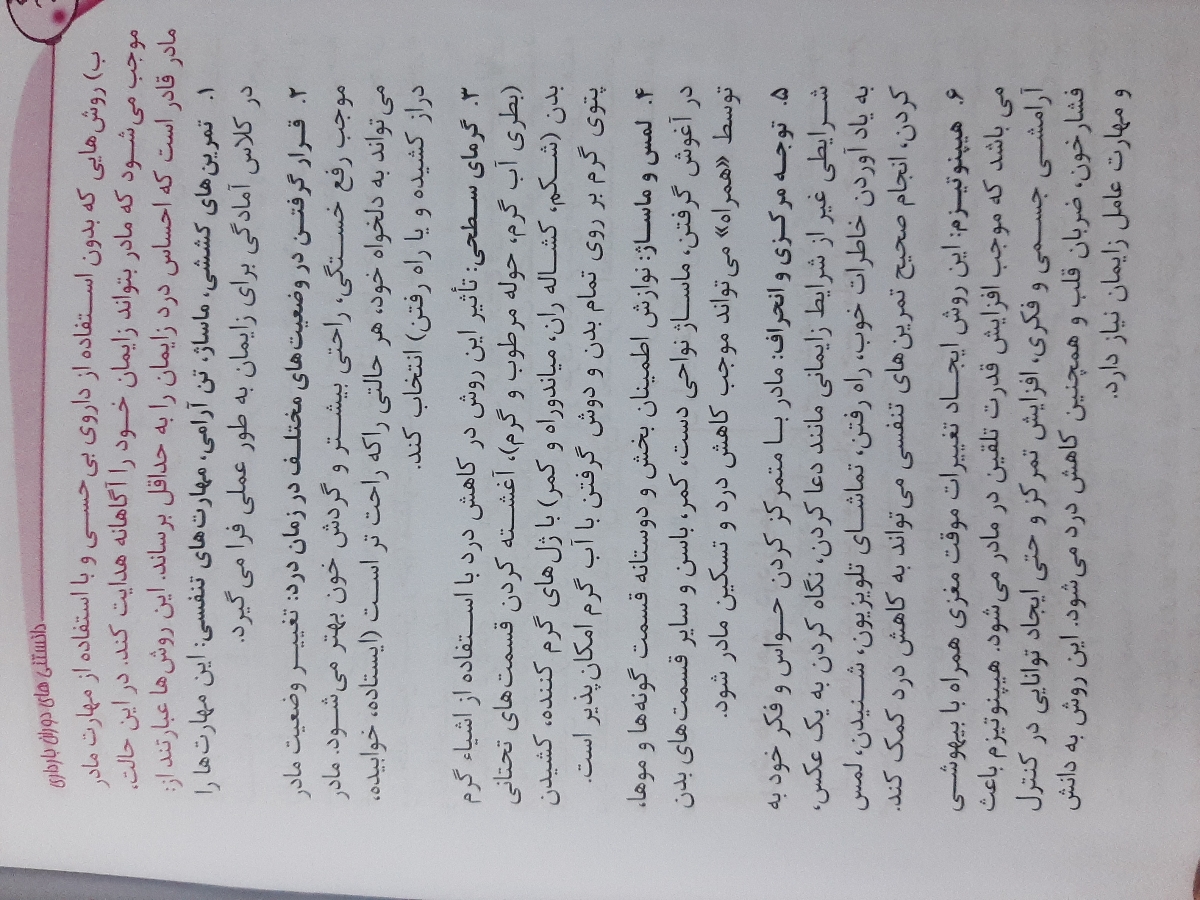 دانستنی های دوران بارداری
ب) روش‌هایی که بدون استفاده از داروی بی‌حسی و با استفاده از مهارت مادر
موجب می‌شود که مادر بتواند زایمان خود را آگاهانه هدایت کند. در این حالت،
مادر قادر است که احساس درد زایمان را به حداقل برساند. این روش‌ها عبارتند از:
۱. تمرین‌های کششی، ماساژ، تن آرامی، مهارت‌های تنفسی: این مهارت‌ها را
در کلاس آمادگی برای زایمان به طور عملی فرا می‌گیرد.
۲. قرار گرفتن در وضعیت‌های مختلف در زمان درد: تغییر وضعیت مادر
موجب رفع خستگی، راحتی بیشتر و گردش خون بهتر می‌شود. مادر
می‌تواند به دلخواه خود، هر حالتی را که راحت تر است (ایستاده، خوابیده،
دراز کشیده و یا راه رفتن) انتخاب کند.
۳. گرمای سطحی: تأثیر این روش در کاهش درد با استفاده از اشیاء گرم
(بطری آب گرم، حوله مرطوب و گرم)، آغشته کردن قسمت‌های تحتانی
بدن (شکم، کشاله ران، میاندوراه و کمر) با ژل‌های گرم کننده، کشیدن
پتوی گرم بر روی تمام بدن و دوش گرفتن با آب گرم امکان پذیر است.
۴. لمس و ماساژ: نوازش اطمینان بخش و دوستانه قسمت گونه‌ها و موها،
در آغوش گرفتن، ماساژ نواحی دست، کمر، باسن و سایر قسمت‌های بدن
توسط «همراه» می‌تواند موجب کاهش درد و تسکین مادر شود.
۵. توجه مرکزی و انحراف: مادر با متمرکز کردن حواس و فکر خود به
شرایطی غیر از شرایط زایمانی مانند دعا کردن، نگاه کردن به یک عکس،
به یاد آوردن خاطرات خوب، راه رفتن، تماشای تلویزیون، شنیدن، لمس
کردن، انجام صحیح تمرین‌های تنفسی می‌تواند به کاهش درد کمک کند.
۶. هیپنوتیزم: این روش ایجاد تغییرات موقت مغزی همراه با بیهوشی
می باشد که موجب افزایش قدرت تلقین در مادر می‌شود. هیپنوتیزم باعث
آرامشی جسمی و فکری، افزایش تمرکز و حتی ایجاد توانایی در کنترل
فشارخون، ضربان قلب و همچنین کاهش درد می‌شود. این روش به دانش
و مهارت عامل زایمان نیاز دارد.